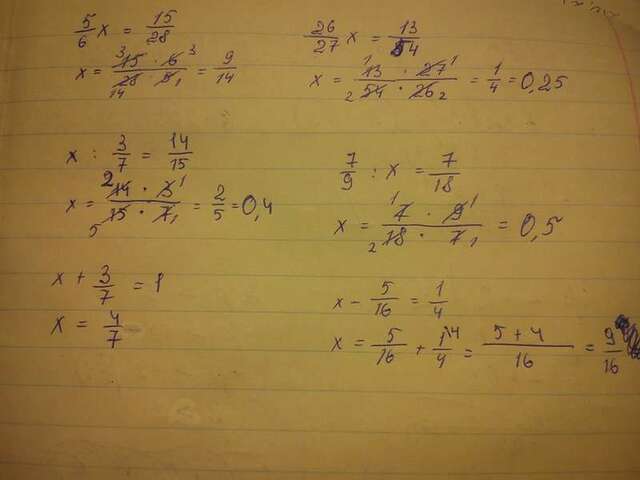 5/6 x = 15/28
x = 15 · 6 / 28 · 5 = 9/14
26/27 x = 13/54
x = 13 · 27 / 54 · 26 = 1/4 = 0,25
x : 3/7 = 14/15
x = 14 · 3 / 15 · 7 = 2/5 = 0,4
7/9 : x = 7/18
x = 7 · 9 / 18 · 7 = 0,5
x + 3/7 = 1
x = 4/7
x - 5/16 = 1/4
x = 5/16 + 1/4 = 5 + 4 / 16 = 9/16